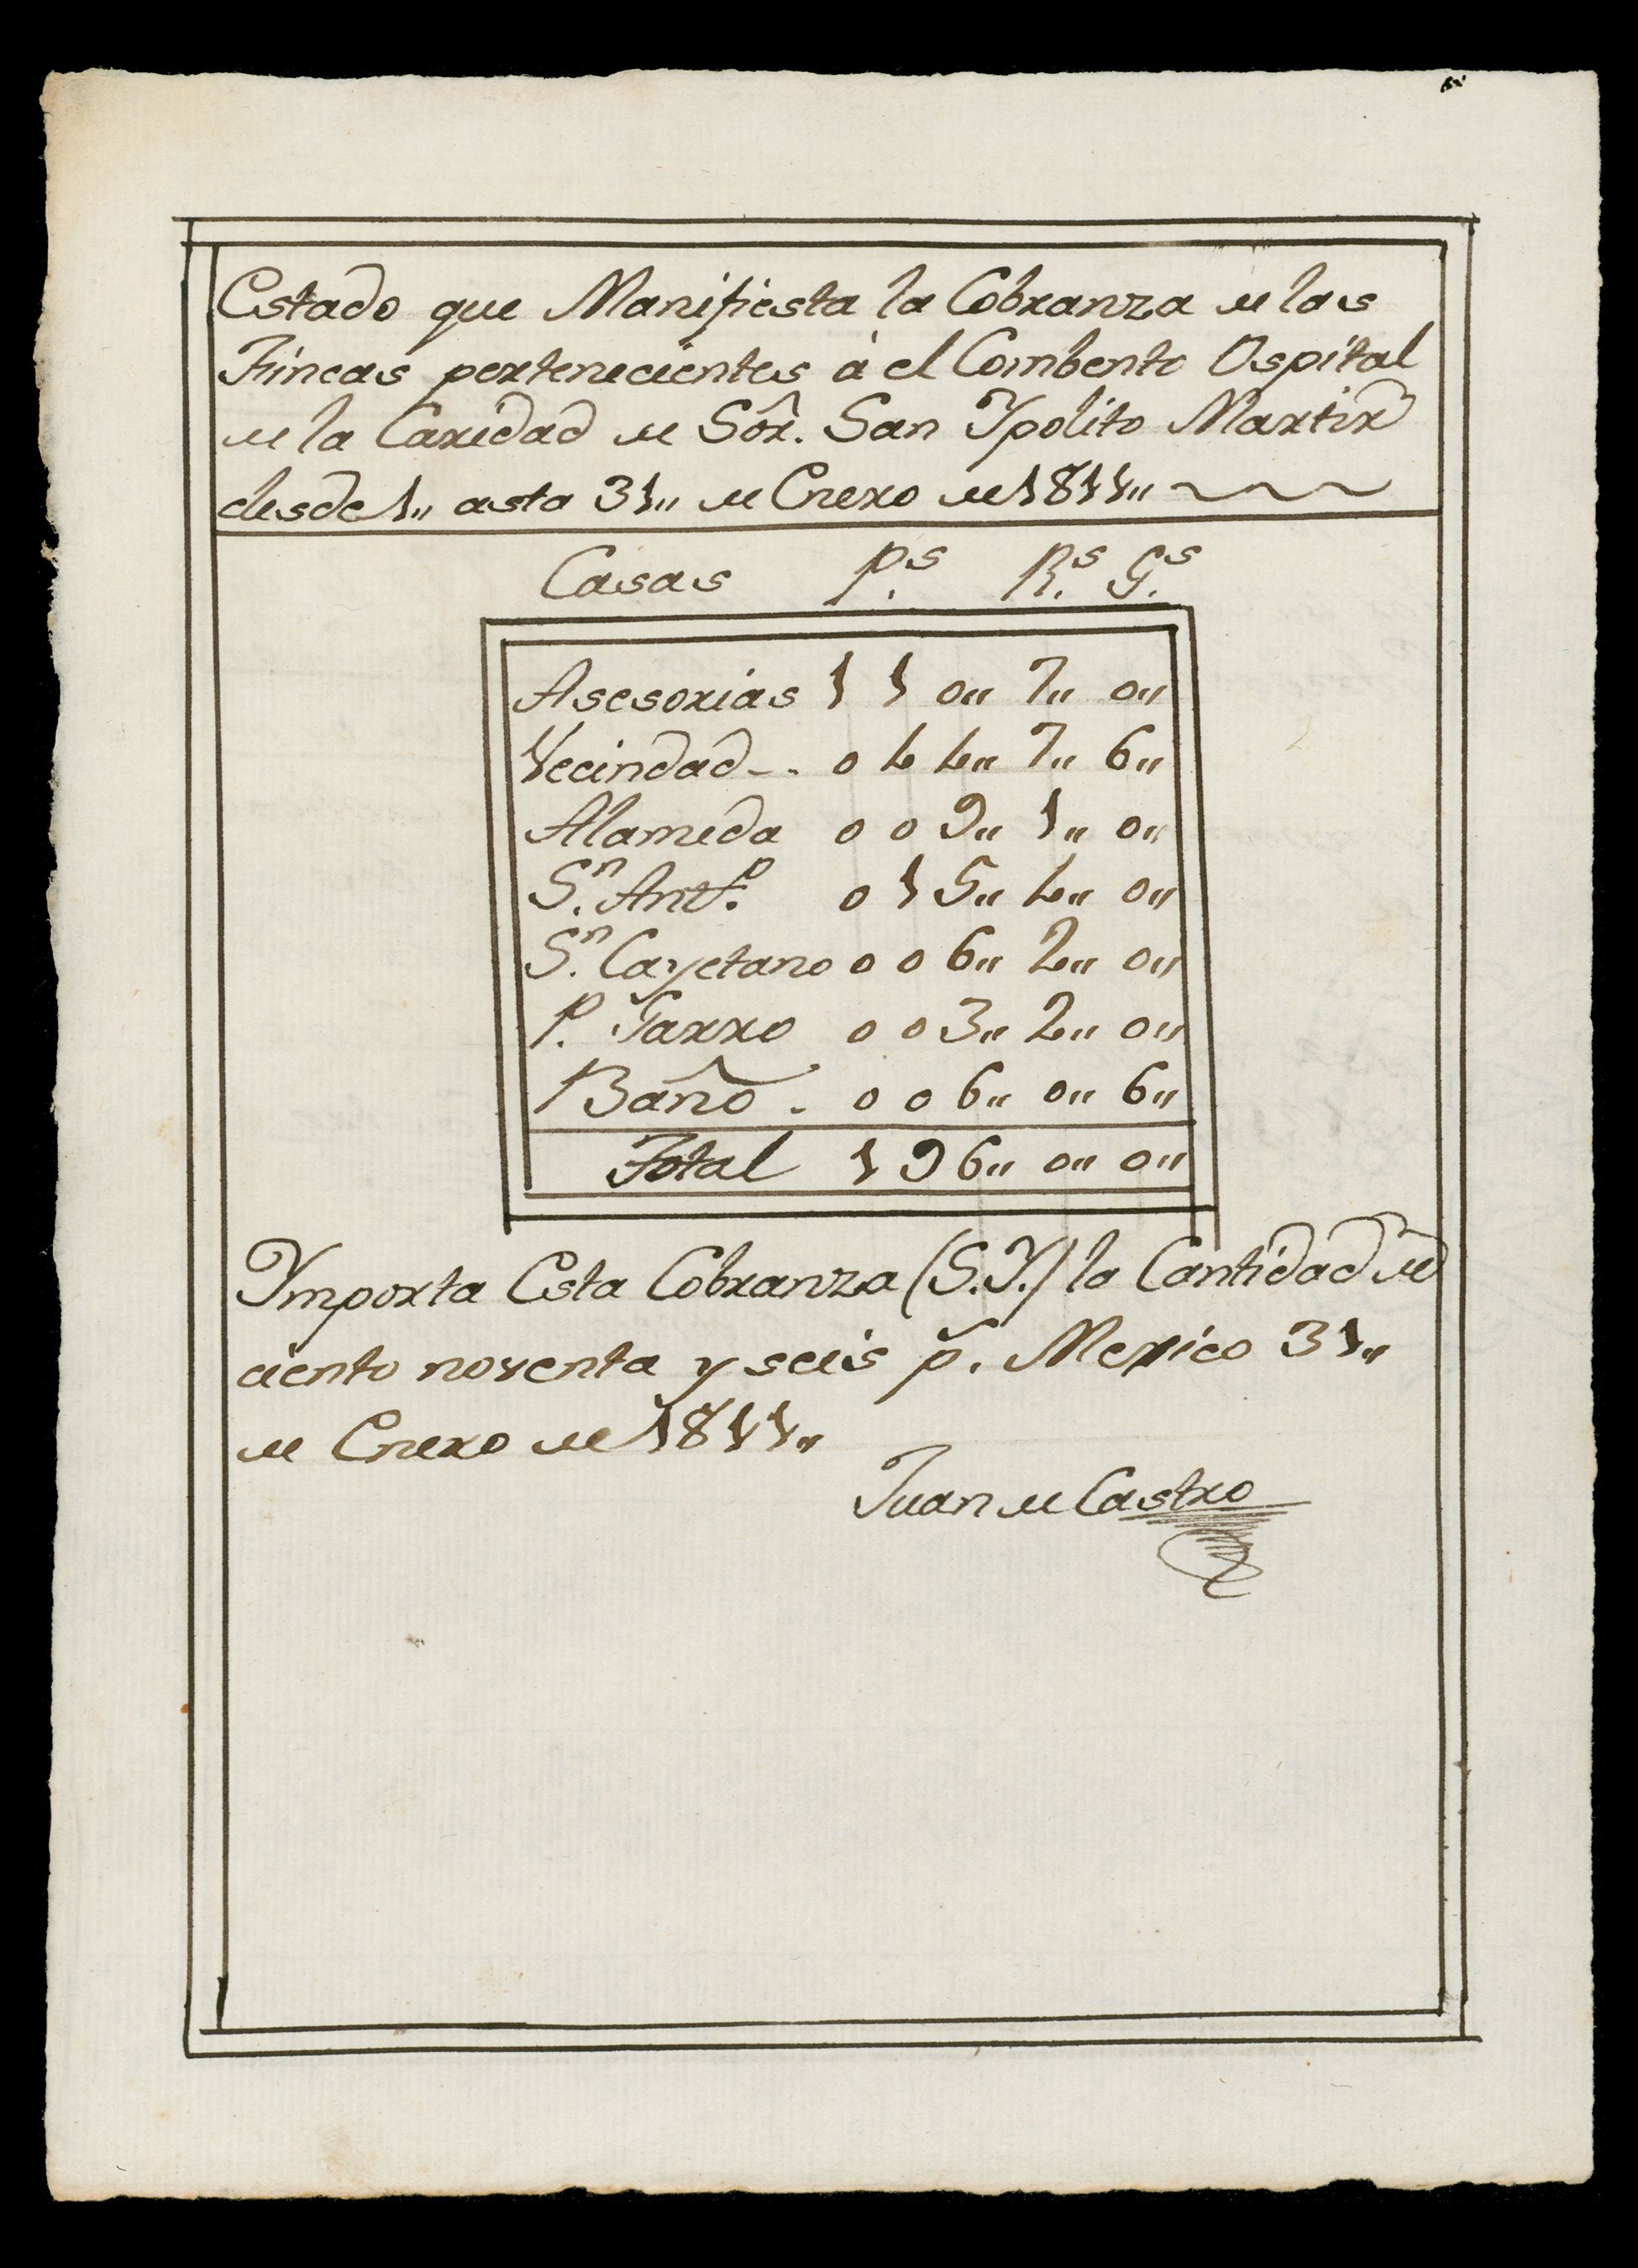 Estado que Manifiesta la Cobranza de las
Fincas pertenecientes á el Combento Ospital
de la Caridad de Sôr. San Ypolito Martir
desde 1,, asta 31,, de Enero de 1811,,
Casas P.s R.s G.s
Asesorias 1 1 0,, 7,, 0,,
Vecindad -. 0 4 4,, 7,, 6,,
Alameda 0 0 9,, 1,, 0,,
S.n Ant.o 0 1 5,, 4,, 0,,
S.n Cayetano 0 0 6,, 2,, 0,,
P. Garro 0 0 3,, 2,, 0,,
Baño . 0 0 6,, 0,, 6,,
Total 1 9 6,, 0,, 0,,
Ymporta Esta Cobranza (S.Y.) la Cantidad de
ciento noventa y seis p. Mexico 31,,
de Enero de 1811,,
Juan de Castro